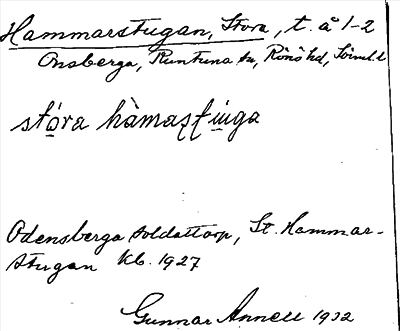 Hammarstugan, Stora, t. å 1-2
Onsberga, Runtuna sn, Rönö hd, Söml. l
stó̱ra hàmaʂʈu̱ga
Odensberga soldattorp, St. Hammar-
stugan Kb. 1927
Gunnar Annell 1932